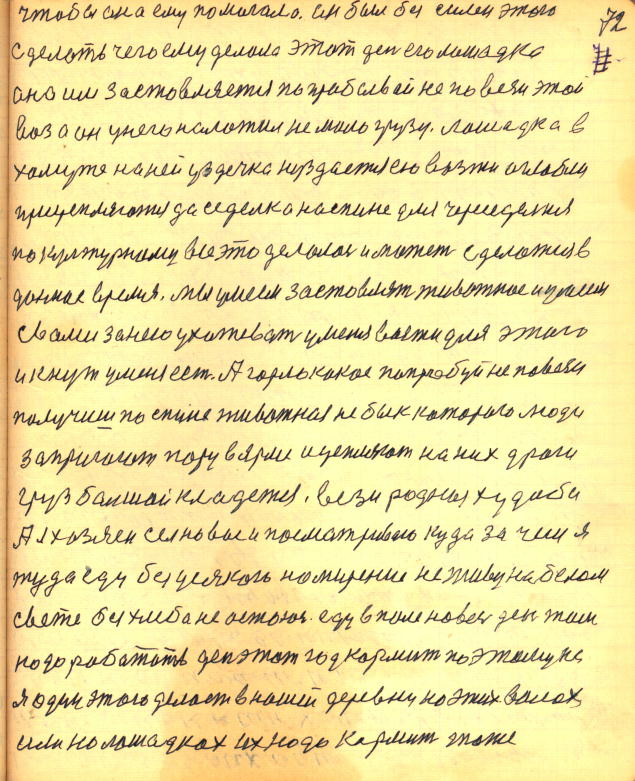 чтобы она ему помогала. он был бы силен этого 72
сделать чего ему делала этот ден его лошадка
она им заставляется попробавай не повези этой
воза он у него наложил немало грузу. лошадка в
хамуте на ней уздечка нуздается вожжи оглобли
прицепляются да седелка на спине для череседелня
по културному все это делалас и может сделатся в
данное время. мы умеем заставлят животное и умеем
свами за нею ухаживат у меня вожжи для этого
и кнут у меня ест. А горло какое попробуй не повези
получиш по спине животная не бык которого люди
запригают пару в ярми и цепляют на них дроги
груз балшой кладется. вези родная худоба
А я хозяен сел на вас и посматриваю куда за чем я
туда еду без усякого намирение не живу на белом
свете без хлеба не астаюс. еду в поле на вес ден там
надо работать ден этот год кармит поэтому не
я один этого делаю в нашей деревни на этих валах
или на лошадках их надо кармит тоже